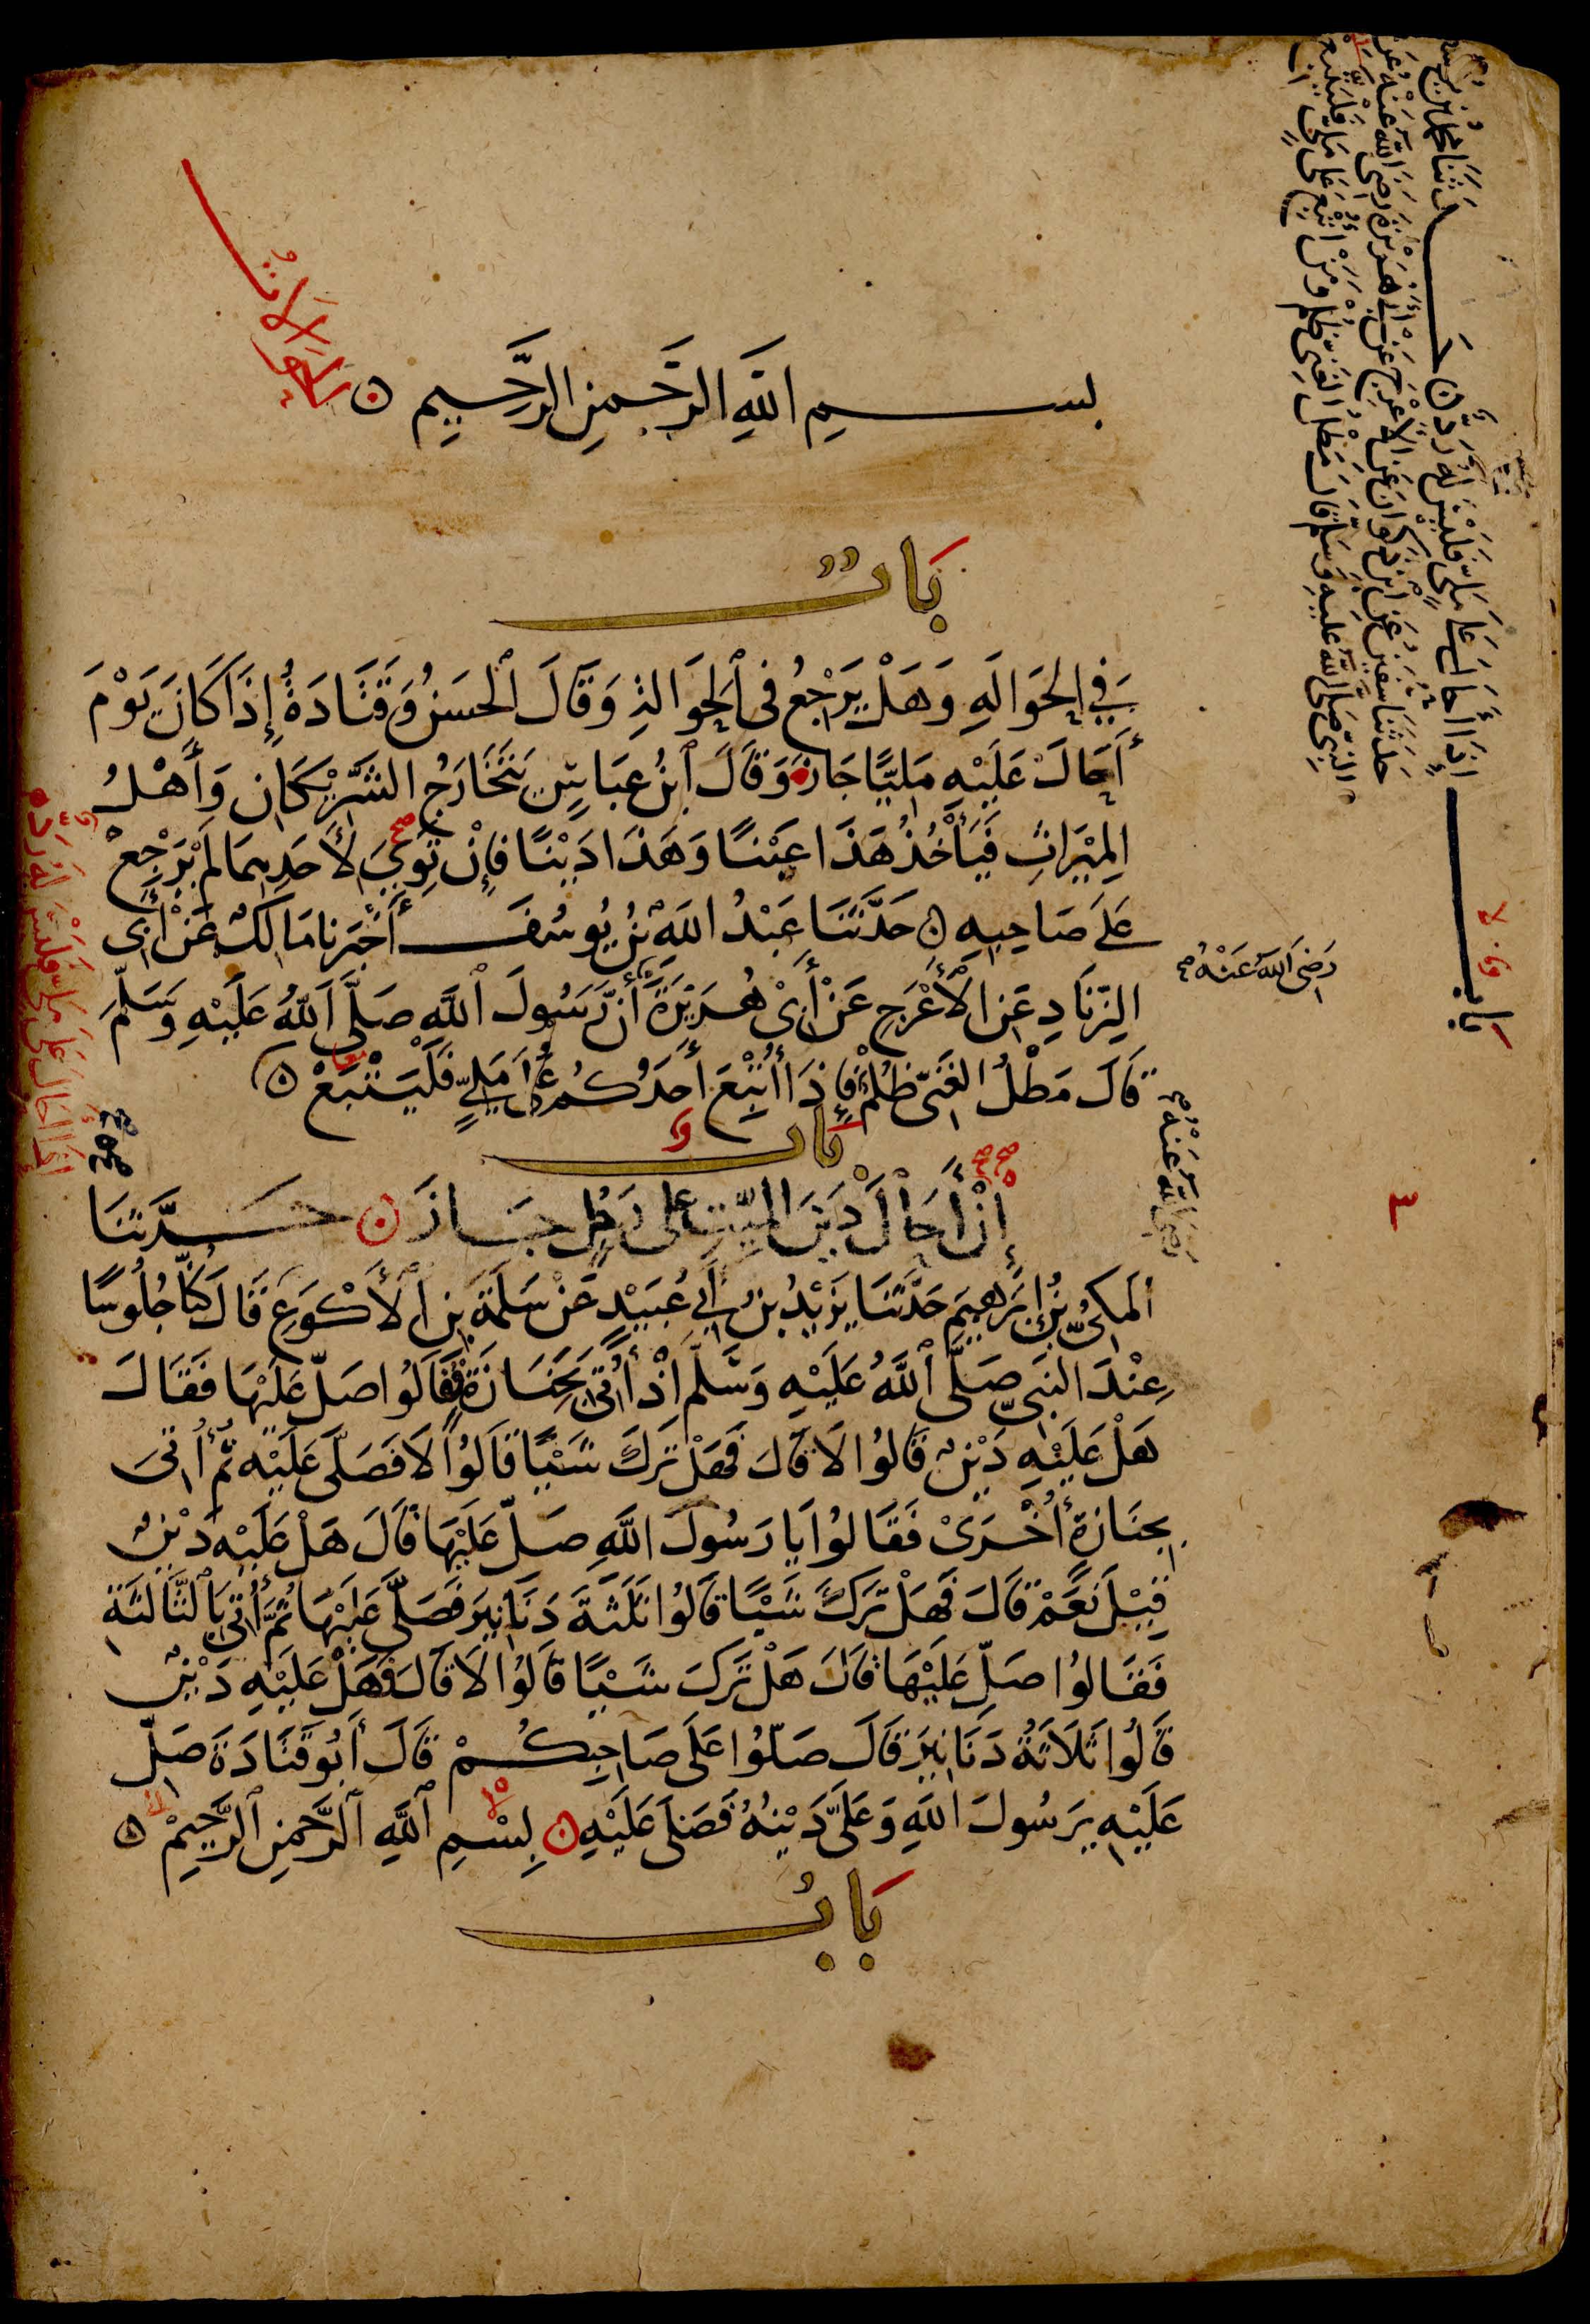 الحوالات
بسم الله الرحمن الرحيم
بَابٌ
فِي الحَوَالَةِ وَهَلْ يَرْجِعُ فِي الحَوَالَةِ وَقَالَ الحَسَنُ وَقَتَادَةُ إِذَا كَانَ يَوْمَ
أَحَالَ عَلَيْهِ مَلِيًّا جَازَ وَقَالَ ابْنُ عَبَّاسٍ يَتَخَارَجُ الشَّرِيكَانِ وَأَهْلُ
المِيْرَاثِ فَيَأْخُذُ هَذَا عَيْنًا وَهَذَا دَيْنًا فَإِنْ تَوِيَ لِأَحَدِهِمَا لَمْ يَرْجِعْ
عَلَى صَاحِبِهِ حَدَّثَنَا عَبْدُ اللَّهِ بْنُ يُوسُفَ أَخْبَرَنَا مَالِكٌ عَنْ أَبِي
الزِّنَادِ عَنِ الأَعْرَجِ عَنْ أَبِي هُرَيْرَةَ أَنَّ رَسُولَ اللَّهِ صَلَّى اللَّهُ عَلَيْهِ وَسَلَّمَ
قَالَ مَطْلُ الغَنِيِّ ظُلْمٌ فَإِذَا أُتْبِعَ أَحَدُكُمْ عَلَى مَلِيٍّ فَلْيَتْبَعْ
بَاب
إِنْ أَحَالَ دَيْنَ المَيِّتِ عَلَى رَجُلٍ جَازَ حَدَّثَنَا
المَكِّيُّ بْنُ إِبْرَهِيمَ حَدَّثَنَا يَزِيْدُ بْنُ أَبِي عُبَيْدٍ عَنْ سَلَمَةَ بْنِ الأَكْوَعِ قَالَ كُنَّا جُلُوسًا
عِنْدَ النَّبِيِّ صَلَّى اللَّهُ عَلَيْهِ وَسَلَّمَ إِذْ أُتِيَ بِجَنَازَةٍ فَقَالُوا صَلِّ عَلَيْهَا فَقَالَ
هَلْ عَلَيْهِ دَيْنٌ قَالُوا لَا قَالَ فَهَلْ تَرَكَ شَيْئًا قَالُوا لَا فَصَلَّى عَلَيْهِ ثُمَّ أُتِيَ
بِجَنَازَةٍ أُخْرَى فَقَالُوا يَا رَسُولَ اللَّهِ صَلِّ عَلَيْهَا قَالَ هَلْ عَلَيْهِ دَيْنٌ
قِيْلَ نَعَمْ قَالَ فَهَلْ تَرَكَ شَيْئًا قَالُوا ثَلَثَةَ دَنَانِيرَ فَصَلَّى عَلَيْهَا ثُمَّ أُتِيَ بِالثَّالِثَةِ
فَقَالُوا صَلِّ عَلَيْهَا قَالَ هَلْ تَرَكَ شَيْئًا قَالُوا لَا قَالَ فَهَلْ عَلَيْهِ دَيْنٌ
قَالُوا ثَلَاثَةُ دَنَانِيرَ قَالَ صَلُّوا عَلَى صَاحِبِكُمْ قَالَ أَبُو قَتَادَةَ صَلِّ
عَلَيْهِ يَرَسُولَ اللَّهِ وَعَلَيَّ دَيْنُهُ فَصَلَّى عَلَيْهِ بِسْمِ اللَّهِ الرَّحْمَنِ الرَّحِيمِ
بَابُ
رَضِيَ اللَّهُ عَنْهُ
رَضِيَ اللَّهُ عَنْهُ
٣
باب إِذَا أَحَالَ عَلَى مَلِيٍّ فَلَيْسَ لَهُ رَدٌّ حَدَّثَنَا محمد بن يوسف
حَدَّثَنَا سُفْيَنُ عَنِ ابْنِ ذَكْوَانَ عَنِ الأَعْرَجِ عَنْ أَبِي هُرَيْرَةَ رَضِيَ اللَّهُ عَنْهُ عَنِ
النَّبِيِّ صَلَّى اللَّهُ عَلَيْهِ وَسَلَّمَ قَالَ مَطْلُ الغَنِيِّ ظُلْمٌ وَمَنْ أُتْبِعَ عَلَى مَلِيٍّ فَلْيَتَّبِعْ
إذا أحال على ملي فليس له رد